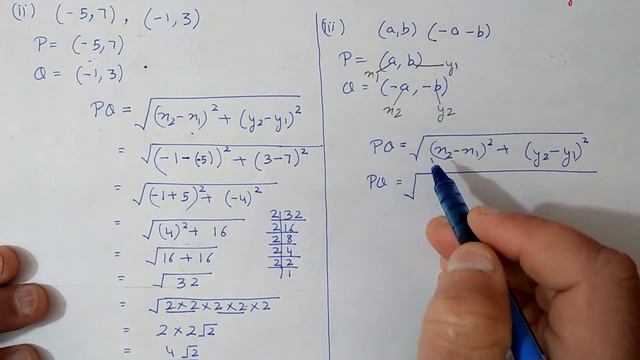 (ii) (-5,7), (-1,3)
P = (-5,7)
Q = (-1,3)
PQ = √(x₂-x₁)² + (y₂-y₁)²
= √(-1-(-5))² + (3-7)²
= √(-1+5)² + (-4)²
= √(4)² + 16
= √16 + 16
= √32
= √2×2×2×2×2
= 2×2√2
= 4√2
2 32
2 16
2 8
2 4
2 2
1
(iii) (a,b) (-a -b)
P = (a, b)
x₁ y₁
Q = (-a, -b)
x₂ y₂
PQ = √(x₂-x₁)² + (y₂-y₁)²
PQ = √